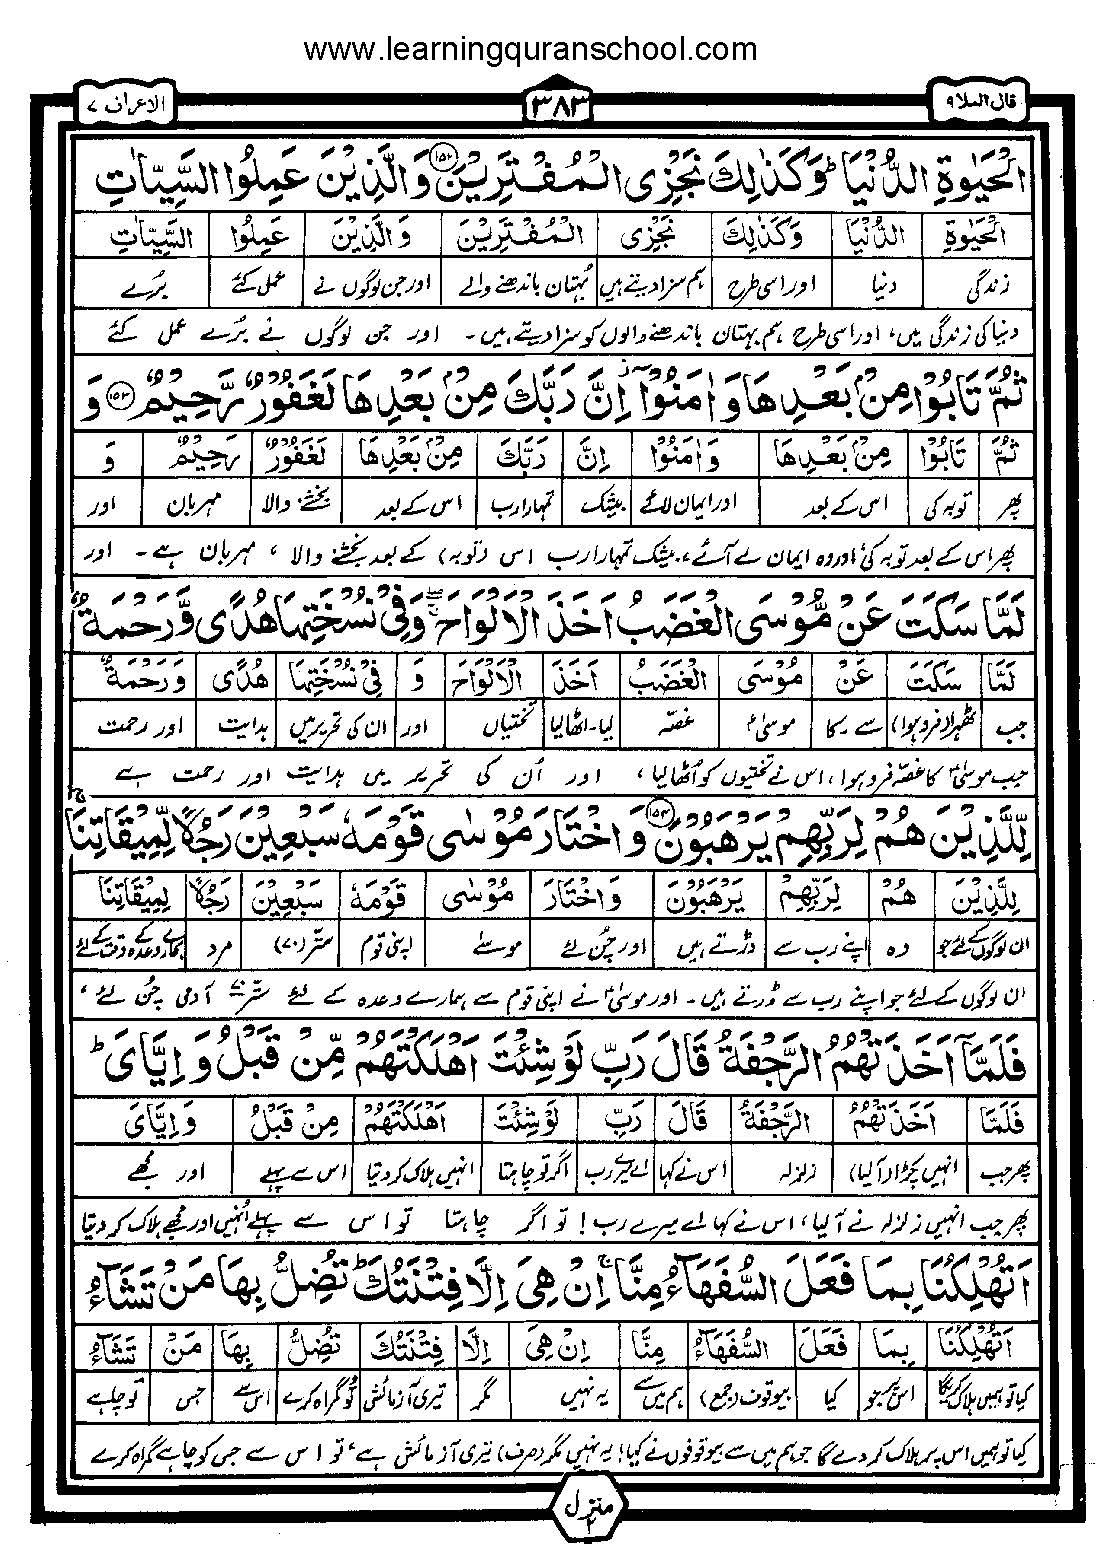 www.learningquranschool.com
قال الملا ٩
٣٨٣
الاعراف ٧
الْحَيٰوةِ الدُّنْيَا ؕ وَكَذٰلِكَ نَجْزِى الْمُفْتَرِيْنَ ﴿١٥٢﴾ وَالَّذِيْنَ عَمِلُوا السَّيِّاٰتِ
الْحَيٰوةِ الدُّنْيَا وَكَذٰلِكَ نَجْزِى الْمُفْتَرِيْنَ وَالَّذِيْنَ عَمِلُوا السَّيِّاٰتِ
زندگی دنیا اور اسی طرح ہم سزا دیتے ہیں بُہتان باندھنے والے اور جن لوگوں نے عمل کئے بُرے
دنیا کی زندگی میں، اور اسی طرح ہم بہتان باندھنے والوں کو سزا دیتے ہیں۔ اور جن لوگوں نے بُرے عمل کئے
ثُمَّ تَابُوْا مِنْۢ بَعْدِهَا وَاٰمَنُوْٓا اِنَّ رَبَّكَ مِنْۢ بَعْدِهَا لَغَفُوْرٌ رَّحِيْمٌ ﴿١٥٣﴾ وَ
ثُمَّ تَابُوْا مِنْۢ بَعْدِهَا وَاٰمَنُوْا اِنَّ رَبَّكَ مِنْۢ بَعْدِهَا لَغَفُوْرٌ رَحِيْمٌ وَ
پھر توبہ کی اس کے بعد اور ایمان لائے بیشک تمہارا رب اس کے بعد بخشنے والا مہربان اور
پھر اس کے بعد توبہ کی اور وہ ایمان لے آئے، بیشک تمہارا رب اس (توبہ) کے بعد بخشنے والا، مہربان ہے۔ اور
لَمَّا سَكَتَ عَنْ مُّوْسَى الْغَضَبُ اَخَذَ الْاَلْوَاحَ ۖ وَفِىْ نُسْخَتِهَا هُدًى وَّرَحْمَةٌ
لَمَّا سَكَتَ عَنْ مُوْسَى الْغَضَبُ اَخَذَ الْاَلْوَاحَ وَ فِىْ نُسْخَتِهَا هُدًى وَرَحْمَةٌ
جب ٹھہرا (فرو ہوا) سے رکا موسیٰؑ غصّہ لیا۔ اٹھا لیا تختیاں اور ان کی تحریر میں ہدایت اور رحمت
جب موسیٰؑ کا غصّہ فرو ہوا، اس نے تختیوں کو اُٹھا لیا، اور اُن کی تحریر میں ہدایت اور رحمت ہے
لِّلَّذِيْنَ هُمْ لِرَبِّهِمْ يَرْهَبُوْنَ ﴿١٥٤﴾ وَاخْتَارَ مُوْسٰى قَوْمَهٗ سَبْعِيْنَ رَجُلًا لِّمِيْقَاتِنَا
لِلَّذِيْنَ هُمْ لِرَبِّهِمْ يَرْهَبُوْنَ وَاخْتَارَ مُوْسٰى قَوْمَهٗ سَبْعِيْنَ رَجُلًا لِمِيْقَاتِنَا
ان لوگوں کے لئے جو وہ اپنے رب سے ڈرتے ہیں اور چن لئے موسےٰ اپنی قوم ستّر (۷۰) مرد ہمارے وعدہ وقت کے لئے
ان لوگوں کے لئے جو اپنے رب سے ڈرتے ہیں۔ اور موسیٰؑ نے اپنی قوم سے ہمارے وعدہ کے لئے ستّر آدمی چن لئے،
فَلَمَّآ اَخَذَتْهُمُ الرَّجْفَةُ قَالَ رَبِّ لَوْ شِئْتَ اَهْلَكْتَهُمْ مِّنْ قَبْلُ وَاِيَّاىَ ؕ
فَلَمَّا اَخَذَتْهُمُ الرَّجْفَةُ قَالَ رَبِّ لَوْ شِئْتَ اَهْلَكْتَهُمْ مِنْ قَبْلُ وَاِيَّاىَ
پھر جب انہیں پکڑا (آ لیا) زلزلہ اس نے کہا اے میرے رب اگر تو چاہتا انہیں ہلاک کر دیتا اس سے پہلے اور مجھے
پھر جب انہیں زلزلہ نے آ لیا، اس نے کہا اے میرے رب! تو اگر چاہتا تو اس سے پہلے اُنہیں اور مجھے ہلاک کر دیتا
اَتُهْلِكُنَا بِمَا فَعَلَ السُّفَهَآءُ مِنَّا ۚ اِنْ هِىَ اِلَّا فِتْنَتُكَ ؕ تُضِلُّ بِهَا مَنْ تَشَآءُ
اَتُهْلِكُنَا بِمَا فَعَلَ السُّفَهَآءُ مِنَّا اِنْ هِىَ اِلَّا فِتْنَتُكَ تُضِلُّ بِهَا مَنْ تَشَآءُ
کیا تو ہمیں ہلاک کریگا اس پر جو کیا بیوقوف (جمع) ہم میں سے یہ نہیں مگر تیری آزمائش تو گمراہ کرے اس سے جس تو چاہے
کیا تو ہمیں اس پر ہلاک کر دے گا جو ہم میں سے بیوقوفوں نے کیا! یہ نہیں مگر (صرف) تیری آزمائش ہے، تو اس سے جس کو چاہے گمراہ کرے
منزل ٢